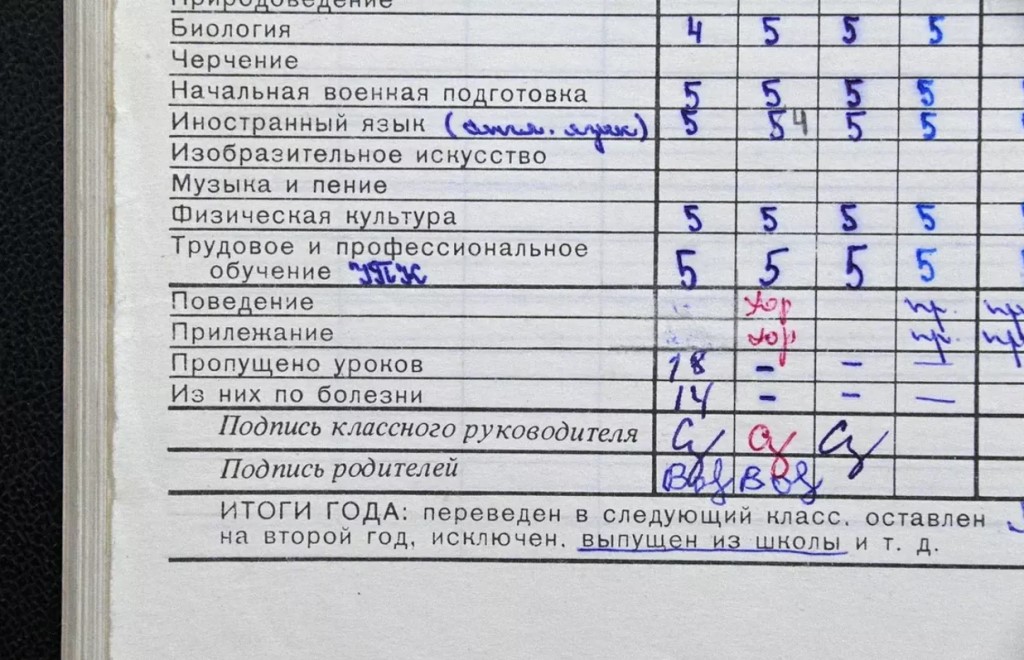 Природоведение
Биология 4 5 5 5
Черчение
Начальная военная подготовка 5 5 5 5
Иностранный язык (англ. язык) 5 5 4 5 5
Изобразительное искусство
Музыка и пение
Физическая культура 5 5 5 5
Трудовое и профессиональное
обучение УПК 5 5 5 5
Поведение хор пр. пр
Прилежание хор пр. пр
Пропущено уроков 18 – – –
Из них по болезни 14 – – –
Подпись классного руководителя
Подпись родителей
ИТОГИ ГОДА: переведен в следующий класс. оставлен
на второй год, исключен. выпущен из школы и т. д.